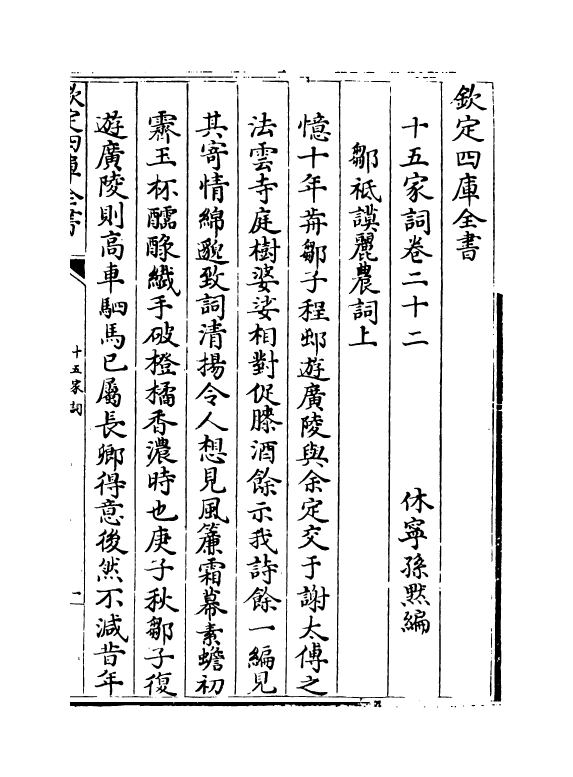 欽定四庫全書
十五家詞卷二十二
休寧孫黙編
鄒祗謨麗農詞上
憶十年前鄒子程邨遊廣陵與余定交于謝太傅之
法雲寺庭樹婆娑相對促膝酒餘示我詩餘一編見
其寄情綿邈致詞清揚令人想見風簾霜幕素蟾初
霽玉杯醹醁纎手破橙橘香濃時也庚子秋鄒子復
遊廣陵則髙車駟馬已屬長卿得意後然不減昔年
欽定四庫全書
十五家詞